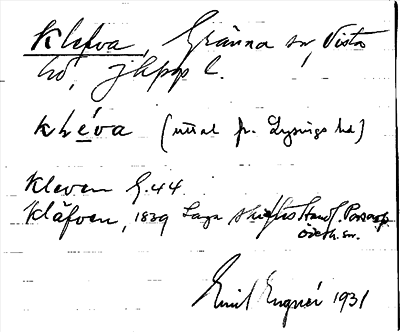 Klefva, Gränna sn, Vista
hd, Jkpgs l.
kléva (uttal fr. Lysings hd)
Kleven G.44.
Kläfven, 1839 Laga skiftes Handl.
Emil Engnér 1931